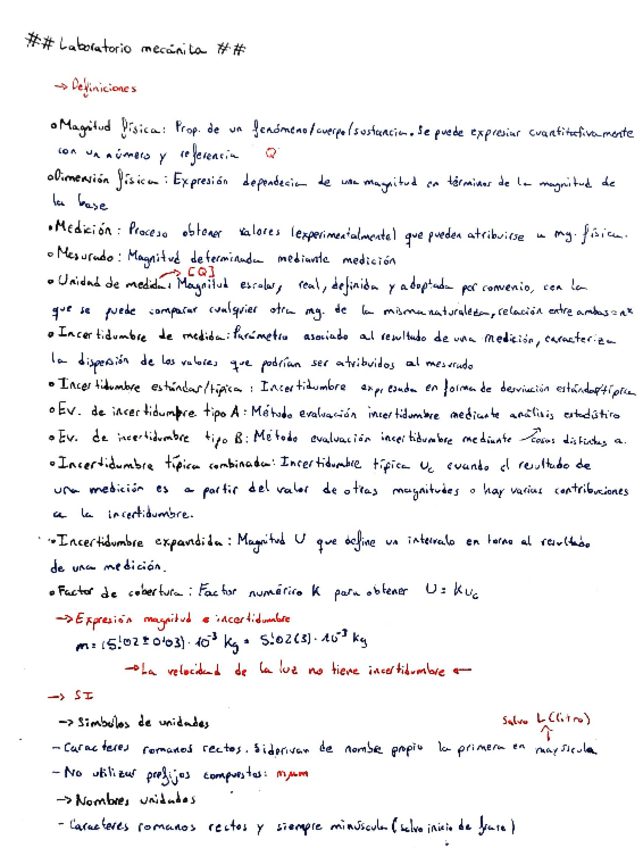 ## Laboratorio mecánica ##
→ Definiciones
• Magnitud física: Prop. de un fenómeno/cuerpo/sustancia. Se puede expresar cuantitativamente
con un número y referencia Q
• Dimensión física: Expresión dependecia de una magnitud en términos de la magnitud de
la base
• Medición: Proceso obtener valores (experimentalmente) que pueden atribuirse a mg. física.
• Mesurado: Magnitud determinada mediante medición
[Q]
• Unidad de medida: Magnitud escalar, real, definida y adoptada por convenio, con la
que se puede comparar cualquier otra mg. de la misma naturaleza, relación entre ambas = nº
• Incertidumbre de medida: Parámetro asociado al resultado de una medición, caracteriza
la dispersión de los valores que podrían ser atribuidos al mesurado
• Incertidumbre estándar/típica: Incertidumbre expresada en forma de desviación estándar/típica
• Ev. de incertidumbre tipo A: Método evaluación incertidumbre mediante análisis estadístico
• Ev. de incertidumbre tipo B: Método evaluación incertidumbre mediante cosas distintas a.
• Incertidumbre típica combinada: Incertidumbre típica uc cuando el resultado de
una medición es a partir del valor de otras magnitudes o hay varias contribuciones
a la incertidumbre.
• Incertidumbre expandida: Magnitud U que define un intervalo en torno al resultado
de una medición.
• Factor de cobertura: Factor numérico K para obtener U = K uc
→ Expresión magnitud e incertidumbre
m = (5'02 ± 0'03) · 10⁻³ kg = 5'02(3) · 10⁻³ kg
→ La velocidad de la luz no tiene incertidumbre ←
→ SI
→ Símbolos de unidades
Salvo L (litro)
- Caracteres romanos rectos. Si derivan de nombre propio la primera en mayúscula
- No utilizar prefijos compuestos: mμm
→ Nombres unidades
- Caracteres romanos rectos y siempre minúscula (salvo inicio de frase)